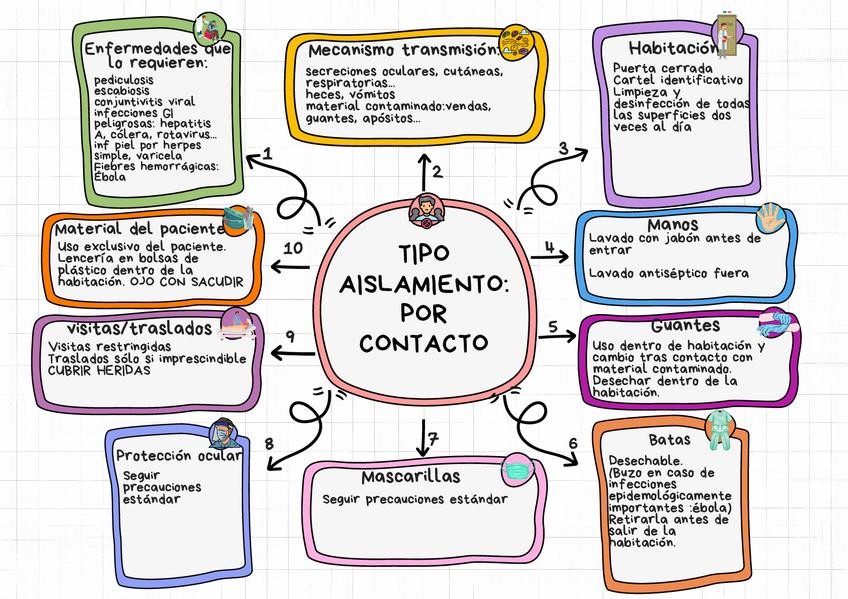 TIPO
AISLAMIENTO:
POR
CONTACTO
1
Enfermedades que
lo requieren:
pediculosis
escabiosis
conjuntivitis viral
infecciones GI
peligrosas: hepatitis
A, cólera, rotavirus...
inf piel por herpes
simple, varicela
Fiebres hemorrágicas:
Ébola
2
Mecanismo transmisión:
secreciones oculares, cutáneas,
respiratorias...
heces, vómitos
material contaminado:vendas,
guantes, apósitos...
3
Habitación
Puerta cerrada
Cartel identificativo
Limpieza y
desinfección de todas
las superficies dos
veces al día
4
Manos
Lavado con jabón antes de
entrar
Lavado antiséptico fuera
5
Guantes
Uso dentro de habitación y
cambio tras contacto con
material contaminado.
Desechar dentro de la
habitación.
6
Batas
Desechable.
(Buzo en caso de
infecciones
epidemológicamente
importantes :ébola)
Retirarla antes de
salir de la
habitación.
7
Mascarillas
Seguir precauciones estándar
8
Protección ocular
Seguir
precauciones
estándar
9
visitas/traslados
Visitas restringidas
Traslados sólo si imprescindible
CUBRIR HERIDAS
10
Material del paciente
Uso exclusivo del paciente.
Lencería en bolsas de
plástico dentro de la
habitación. OJO CON SACUDIR